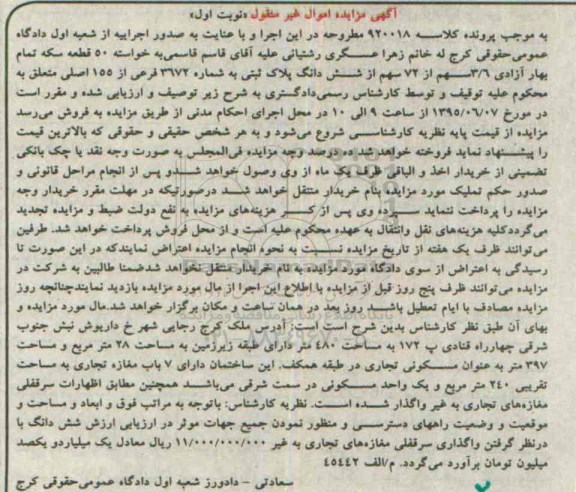 آگهی مزایده اموال غیر منقول «نوبت اول»
به موجب پرونده کلاسه ۹۲۰۰۱۸ مطروحه در این اجرا و با عنایت به صدور اجراییه از شعبه اول دادگاه
عمومی‌حقوقی کرج له خانم زهرا عسگری رشتیانی علیه آقای قاسم قاسمی‌به خواسته ۵۰ قطعه سکه تمام
بهار آزادی ۳/۶سهم از ۷۲ سهم از شش دانگ پلاک ثبتی به شماره ۳۶۷۲ فرعی از ۱۵۵ اصلی متعلق به
محکوم علیه توقیف و توسط کارشناس رسمی‌دادگستری به شرح زیر توصیف و ارزیابی شده و مقرر است
در مورخ ۱۳۹۵/۰۶/۰۷ از ساعت ۹ الی ۱۰ در محل اجرای احکام مدنی از طریق مزایده به فروش می‌رسد
مزایده از قیمت پایه نظریه کارشناسی شروع می‌شود و به هر شخص حقیقی و حقوقی که بالاترین قیمت
را پیشنهاد نماید فروخته خواهد شد. درصد وجه مزایده فی‌المجلس به صورت وجه نقد یا چک بانکی
تضمینی از خریدار اخذ و الباقی ظرف یک ماه از وی وصول خواهد شدو پس از انجام مراحل قانونی و
صدور حکم تملیک مورد مزایده بنام خریدار منتقل خواهد شد درصورتیکه در مهلت مقرر خریدار وجه
مزایده را پرداخت ننماید سپرده وی پس از کسر هزینه‌های مزایده به نفع دولت ضبط و مزایده تجدید
می‌گرددکلیه هزینه‌های نقل وانتقال به عهده محکوم علیه است و از محل فروش پرداخت خواهد شد. طرفین
می‌توانند ظرف یک هفته از تاریخ مزایده نسبت به نحوه انجام مزایده اعتراض نمایندکه در این صورت تا
رسیدگی به اعتراض از سوی دادگاه مورد مزایده به نام خریدار منتقل نخواهد شدضمنا طالبین به شرکت در
مزایده می‌توانند ظرف پنج روز قبل از مزایده با اطلاع این اجرا از مال مورد مزایده بازدید نمایندچنانچه روز
مزایده مصادف با ایام تعطیل باشد روز بعد در همان ساعت و مکان برگزار خواهد شد.مال مورد مزایده و
بهای آن طبق نظر کارشناس بدین شرح است است: آدرس ملک کرج رجایی شهر خ داریوش نبش جنوب
شرقی چهارراه قنادی پ ۱۷۲ به مساحت ۴۸۰ متر دارای طبقه زیرزمین به مساحت ۲۸ متر مربع و مساحت
۳۹۷ متر به عنوان مسکونی تجاری در طبقه همکف. این ساختمان دارای ۷ باب مغازه تجاری به مساحت
تقریبی ۲۴۰ متر مربع و یک واحد مسکونی در سمت شرقی می‌باشد همچنین مطابق اظهارات سرقفلی
مغازه‌های تجاری به غیر واگذار شده است. نظریه کارشناس: باتوجه به مراتب فوق و ابعاد و مساحت و
موقعیت و وضعیت راههای دسترسی و منظور نمودن جمیع جهات موثر در ارزیابی ارزش شش دانگ با
درنظر گرفتن واگذاری سرقفلی مغازه‌های تجاری به غیر ۱۱/۰۰۰/۰۰۰/۰۰۰ ریال معادل یک میلیاردو یکصد
میلیون تومان برآورد می‌گردد. م/الف ۴۵۴۴۲
سعادتی - دادورز شعبه اول دادگاه عمومی‌حقوقی کرج